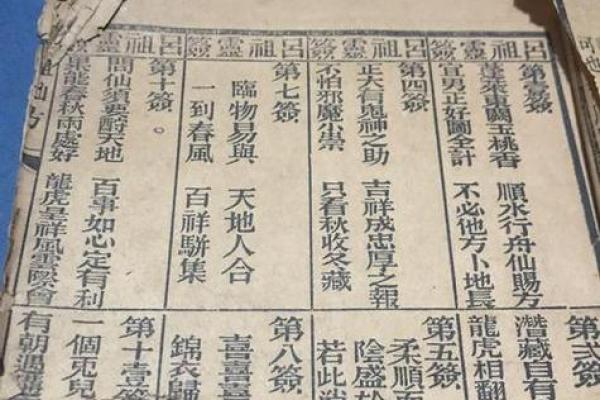 呂祖靈簽
呂祖靈簽
呂祖靈簽
第壹簽
蓬萊東閣玉桃香 順水行舟仙賜方
宜男正好圖全計 不必他方卜地長
第四簽
正大有鬼神之助 吉祥成忠厚之報
不怕邪魔小祟 只看秋收冬藏
第七簽
臨物易與 天地人合
一到春風 百祥駢集
第十簽。
問仙須要酧天地 百事如心定有利
龍春秋兩處好 龍虎呈祥風雲際會
第弍簽
潛藏自有
龍虎相翻
第五簽
柔順而
陰盛於
若此
第八簽
喜喜喜
錦衣歸
第十壹簽
一個兎兒
有朝遇